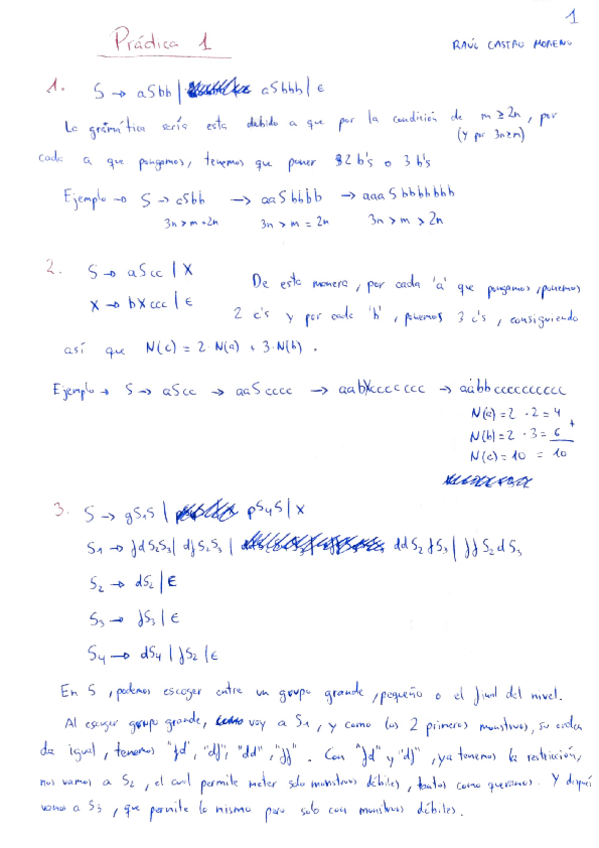 1
Práctica 1
RAÚL CASTRO MORENO
1. S → aSbb | aSbbb | ε
La gramática sería esta debido a que por la condición de m ≥ 2n, por
(y por 3n≥m)
cada a que pongamos, tenemos que poner 2 b's o 3 b's
Ejemplo → S → aSbb → aaSbbbb → aaaSbbbbbbb
3n > m = 2n 3n > m = 2n 3n > m > 2n
2. S → aScc | X
X → bXccc | ε
De esta manera, por cada 'a' que pongamos, ponemos
2 c's y por cada 'b', ponemos 3 c's, consiguiendo
así que N(c) = 2·N(a) + 3·N(b).
Ejemplo → S → aScc → aaScccc → aabXccccccc → aabbcccccccccc
N(a) = 2 · 2 = 4
N(b) = 2 · 3 = 6 +
N(c) = 10 = 10
3. S → gS₁S | pS₄S | X
S₁ → fdS₂S₃ | dfS₂S₃ | ddS₂fS₃ | ffS₂dS₃
S₂ → dS₂ | ε
S₃ → fS₃ | ε
S₄ → dS₄ | fS₂ | ε
En S, podemos escoger entre un grupo grande, pequeño o el final del nivel.
Al escoger grupo grande, voy a S₁, y como los 2 primeros monstruos, su orden
da igual, tenemos "fd", "df", "dd", "ff". Con "fd" y "df", ya tenemos la restricción,
nos vamos a S₂, el cual permite meter solo monstruos débiles, tantos como queramos. Y despué
vamos a S₃, que permite lo mismo pero solo con monstruos débiles.